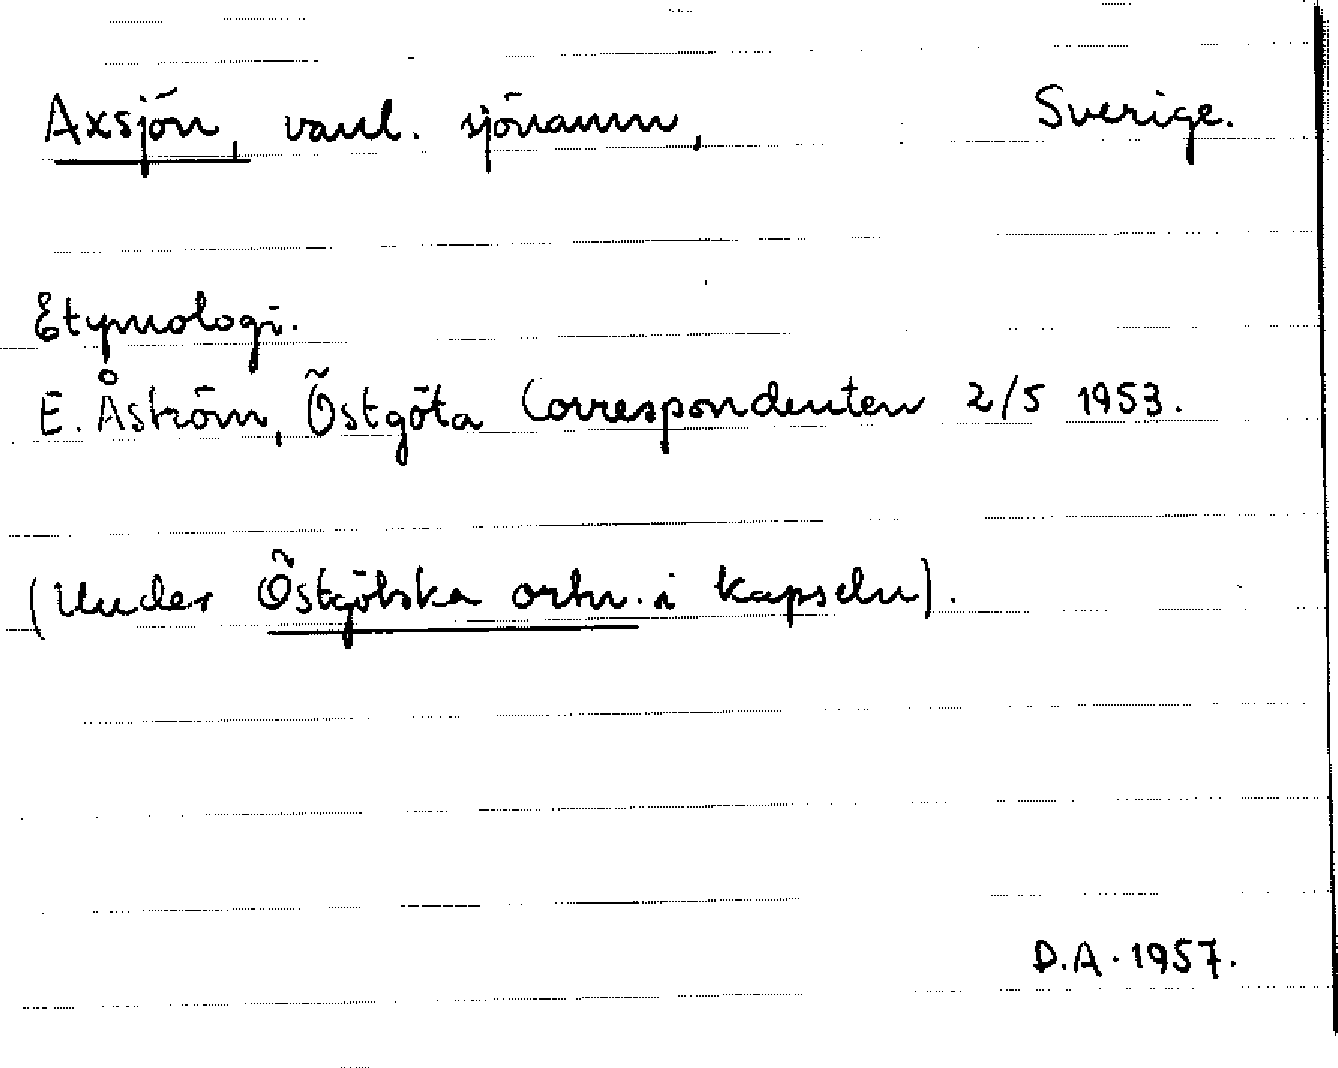 Axsjön, vanl. sjönamn, Sverige.
Etymologi.
E. Åström, Östgöta Correspondenten 2/5 1953.
(Under Östgötska ortn. i kapseln).
D.A. 1957.